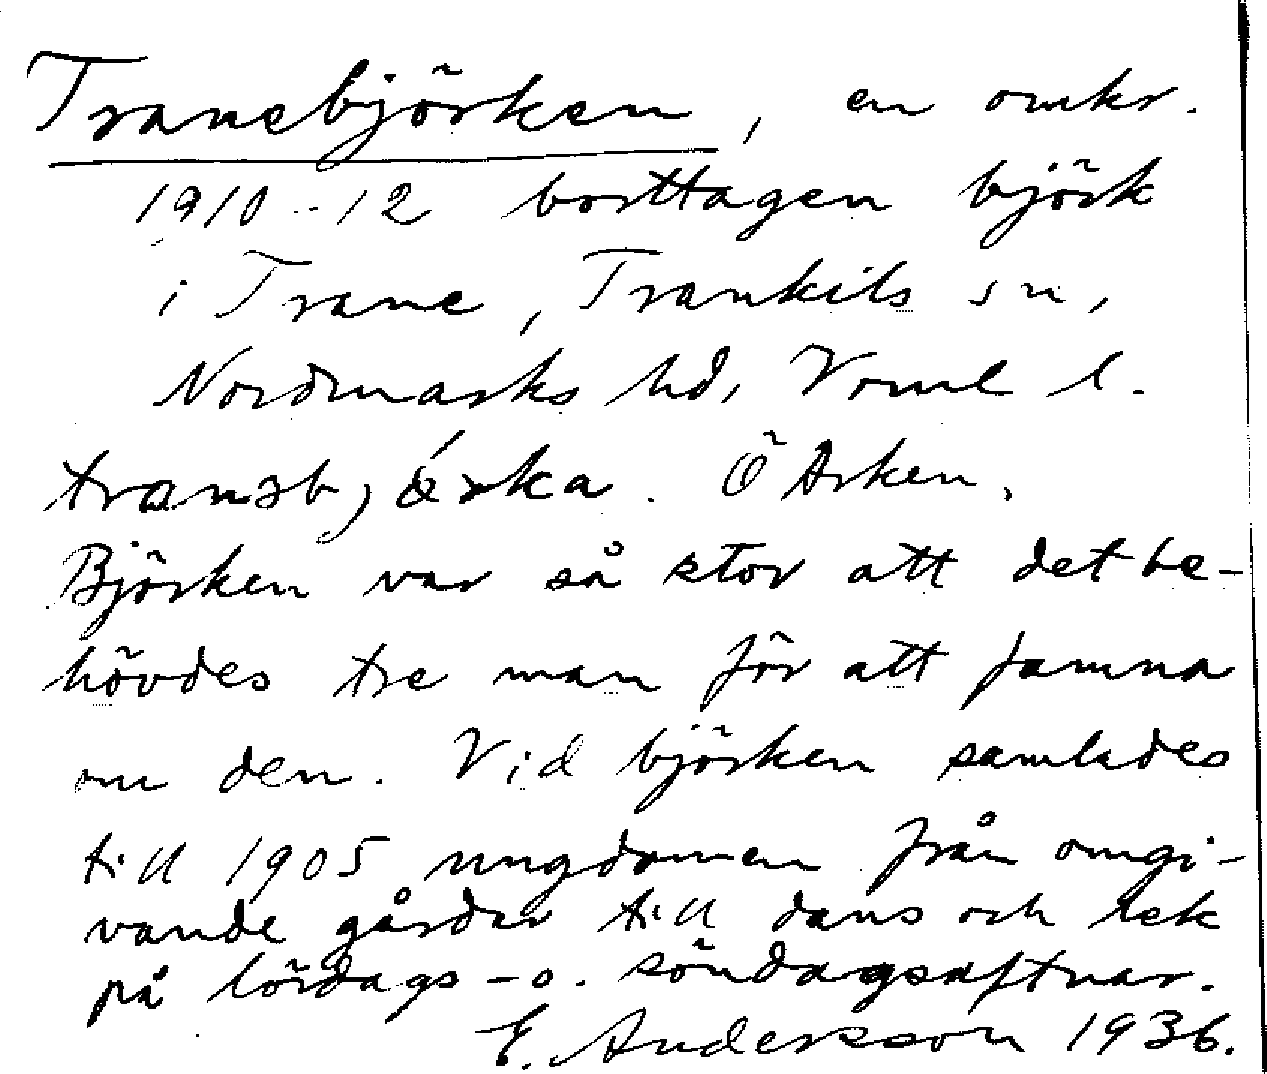 Tranebjörken, en omkr.
1910-12 borttagen björk
i Trane, Trankils sn,
Nordmarks hd, Vrml l.
Ö Arken.
Björken var så stor att det be-
hövdes tre man för att famna
om den. Vid björken samlades
till 1905 ungdomen från omgi-
vande gårdar till dans och lek
på lördags- o. söndagsaftnar.
E. Andersson 1936.